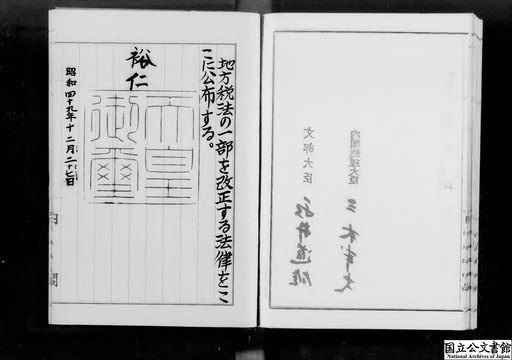 内閣総理大臣
三木武夫
文部大臣
永井道雄
地方税法の一部を改正する法律をこ
こに公布する。
裕仁
天皇
御璽
昭和四十九年十二月二十七日
内閣
国立公文書館
National Archives of Japan